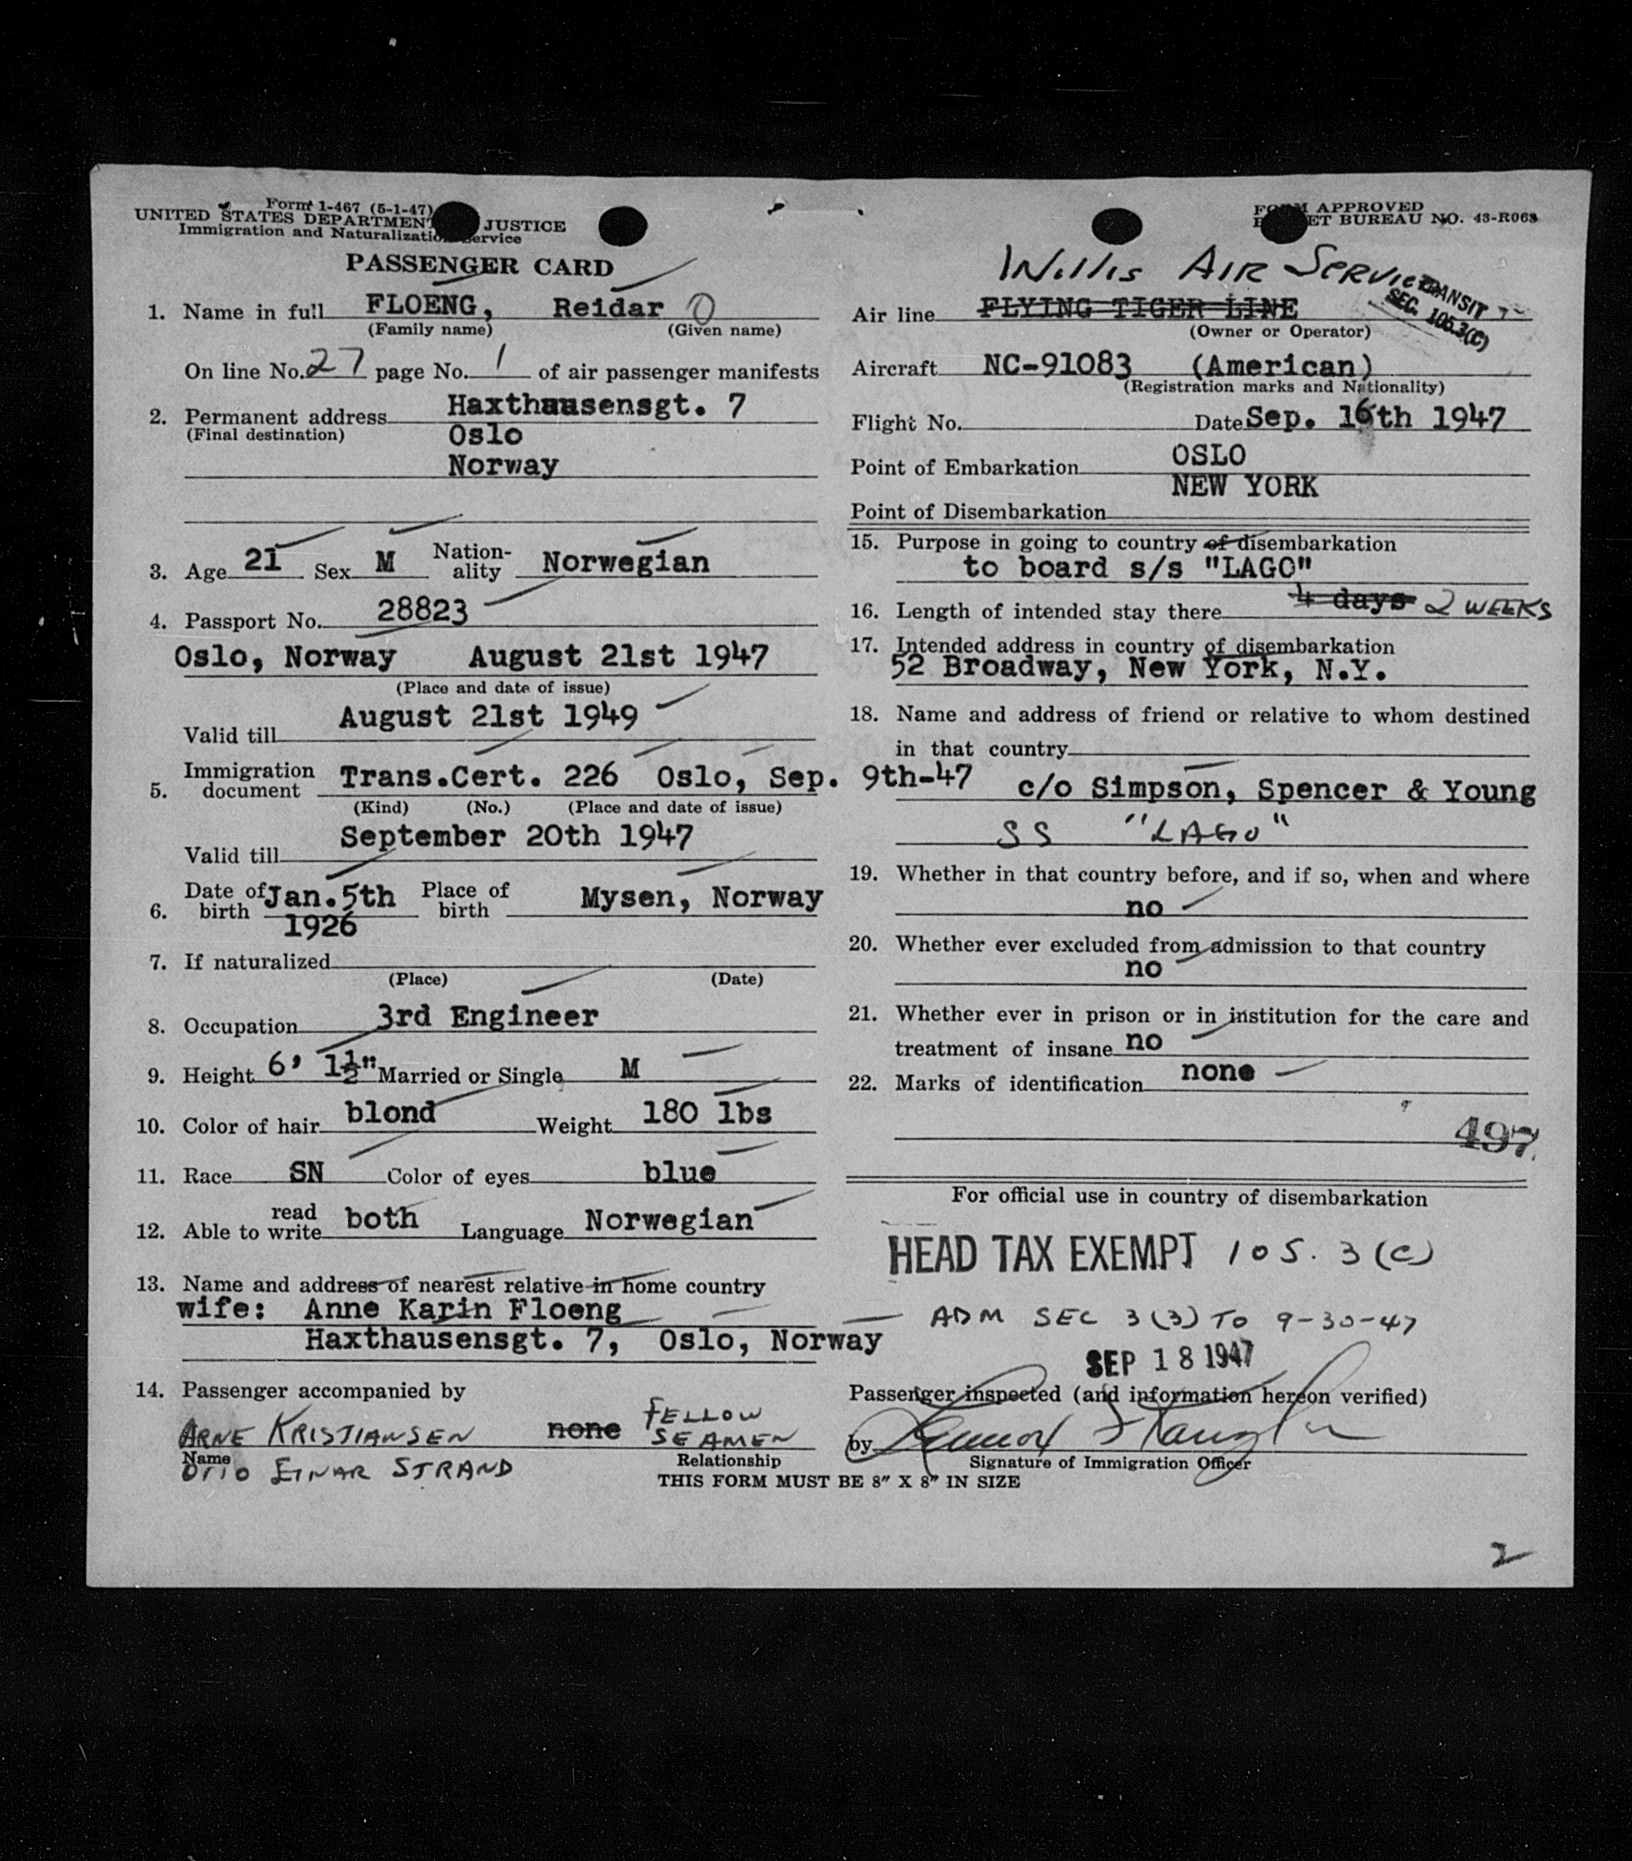 Form 1-467 (5-1-47)
UNITED STATES DEPARTMENT JUSTICE
Immigration and Naturalization Service
PASSENGER CARD
1. Name in full FLOENG, Reidar O
(Family name) (Given name)
On line No. 27 page No. 1 of air passenger manifests
2. Permanent address Haxthausensgt. 7
(Final destination) Oslo
Norway
3. Age 21 Sex M Nation-ality Norwegian
4. Passport No. 28823
Oslo, Norway August 21st 1947
(Place and date of issue)
Valid till August 21st 1949
5. Immigration document Trans.Cert. 226 Oslo, Sep. 9th-47
(Kind) (No.) (Place and date of issue)
Valid till September 20th 1947
6. Date of birth Jan. 5th 1926 Place of birth Mysen, Norway
7. If naturalized
(Place) (Date)
8. Occupation 3rd Engineer
9. Height 6' 1½" Married or Single M
10. Color of hair blond Weight 180 lbs
11. Race SN Color of eyes blue
12. Able to read write both Language Norwegian
13. Name and address of nearest relative in home country
wife: Anne Karin Floeng
Haxthausensgt. 7, Oslo, Norway
14. Passenger accompanied by
ARNE KRISTIANSEN none FELLOW SEAMEN
Name Relationship
OTTO EINAR STRAND
THIS FORM MUST BE 8" X 8" IN SIZE
FORM APPROVED
BUDGET BUREAU NO. 43-R068
Willis AIR SERVICE
TRANSIT
SEC. 105.3(C)
Air line FLYING TIGER LINE
(Owner or Operator)
Aircraft NC-91083 (American)
(Registration marks and Nationality)
Flight No. Date Sep. 16th 1947
Point of Embarkation OSLO
NEW YORK
Point of Disembarkation
15. Purpose in going to country of disembarkation
to board s/s "LAGO"
16. Length of intended stay there 4 days 2 WEEKS
17. Intended address in country of disembarkation
52 Broadway, New York, N.Y.
18. Name and address of friend or relative to whom destined
in that country
c/o Simpson, Spencer & Young
SS "LAGO"
19. Whether in that country before, and if so, when and where
no
20. Whether ever excluded from admission to that country
no
21. Whether ever in prison or in institution for the care and
treatment of insane no
22. Marks of identification none
497
For official use in country of disembarkation
HEAD TAX EXEMPT 105. 3 (C)
ADM SEC 3(3) TO 9-30-47
SEP 18 1947
Passenger inspected (and information hereon verified)
by
Signature of Immigration Officer
2